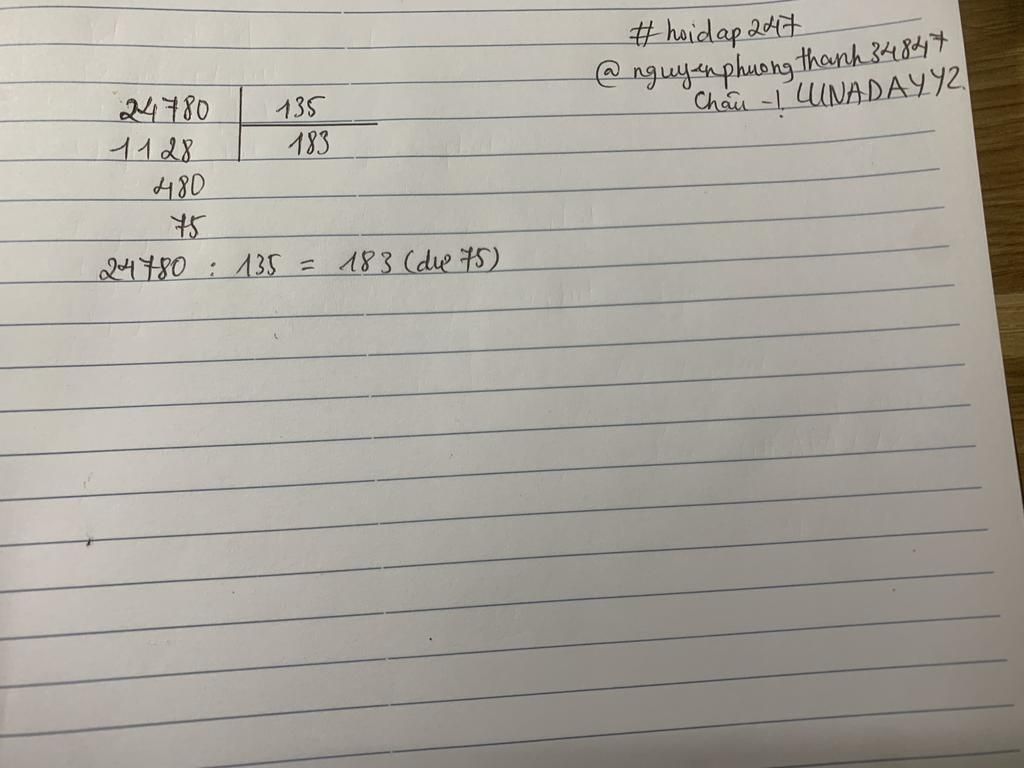 #hoidap247
@nguyenphuongthanh34847
Chău -! LUNADAYYZ.
24780 135
1128 183
480
75
24780 : 135 = 183 (dư 75)